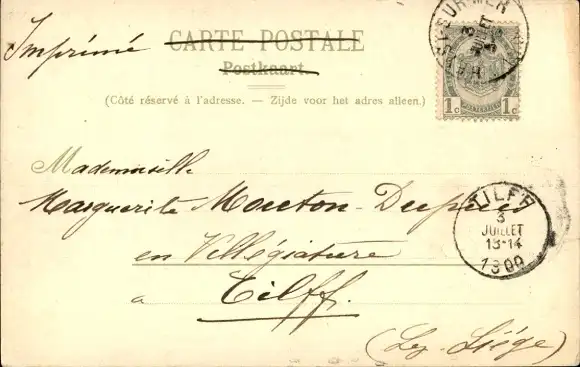 Imprimé
CARTE POSTALE
Postkaart.
(Côté réservé à l'adresse. — Zijde voor het adres alleen.)
1c 1c
Mademoiselle
Marguerite Mouton-
en Villégiature
a
Tilff.
(Lez-Liège)
SUR-MER
JUILLET
TILFF
3
JUILLET
13-14
1900